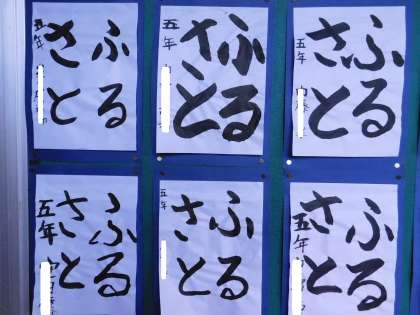 ふる
さと
五年
ふる
さと
五年
ふる
さと
五年
ふる
さと
五年
ふる
さと
五年
ふる
さと
五年